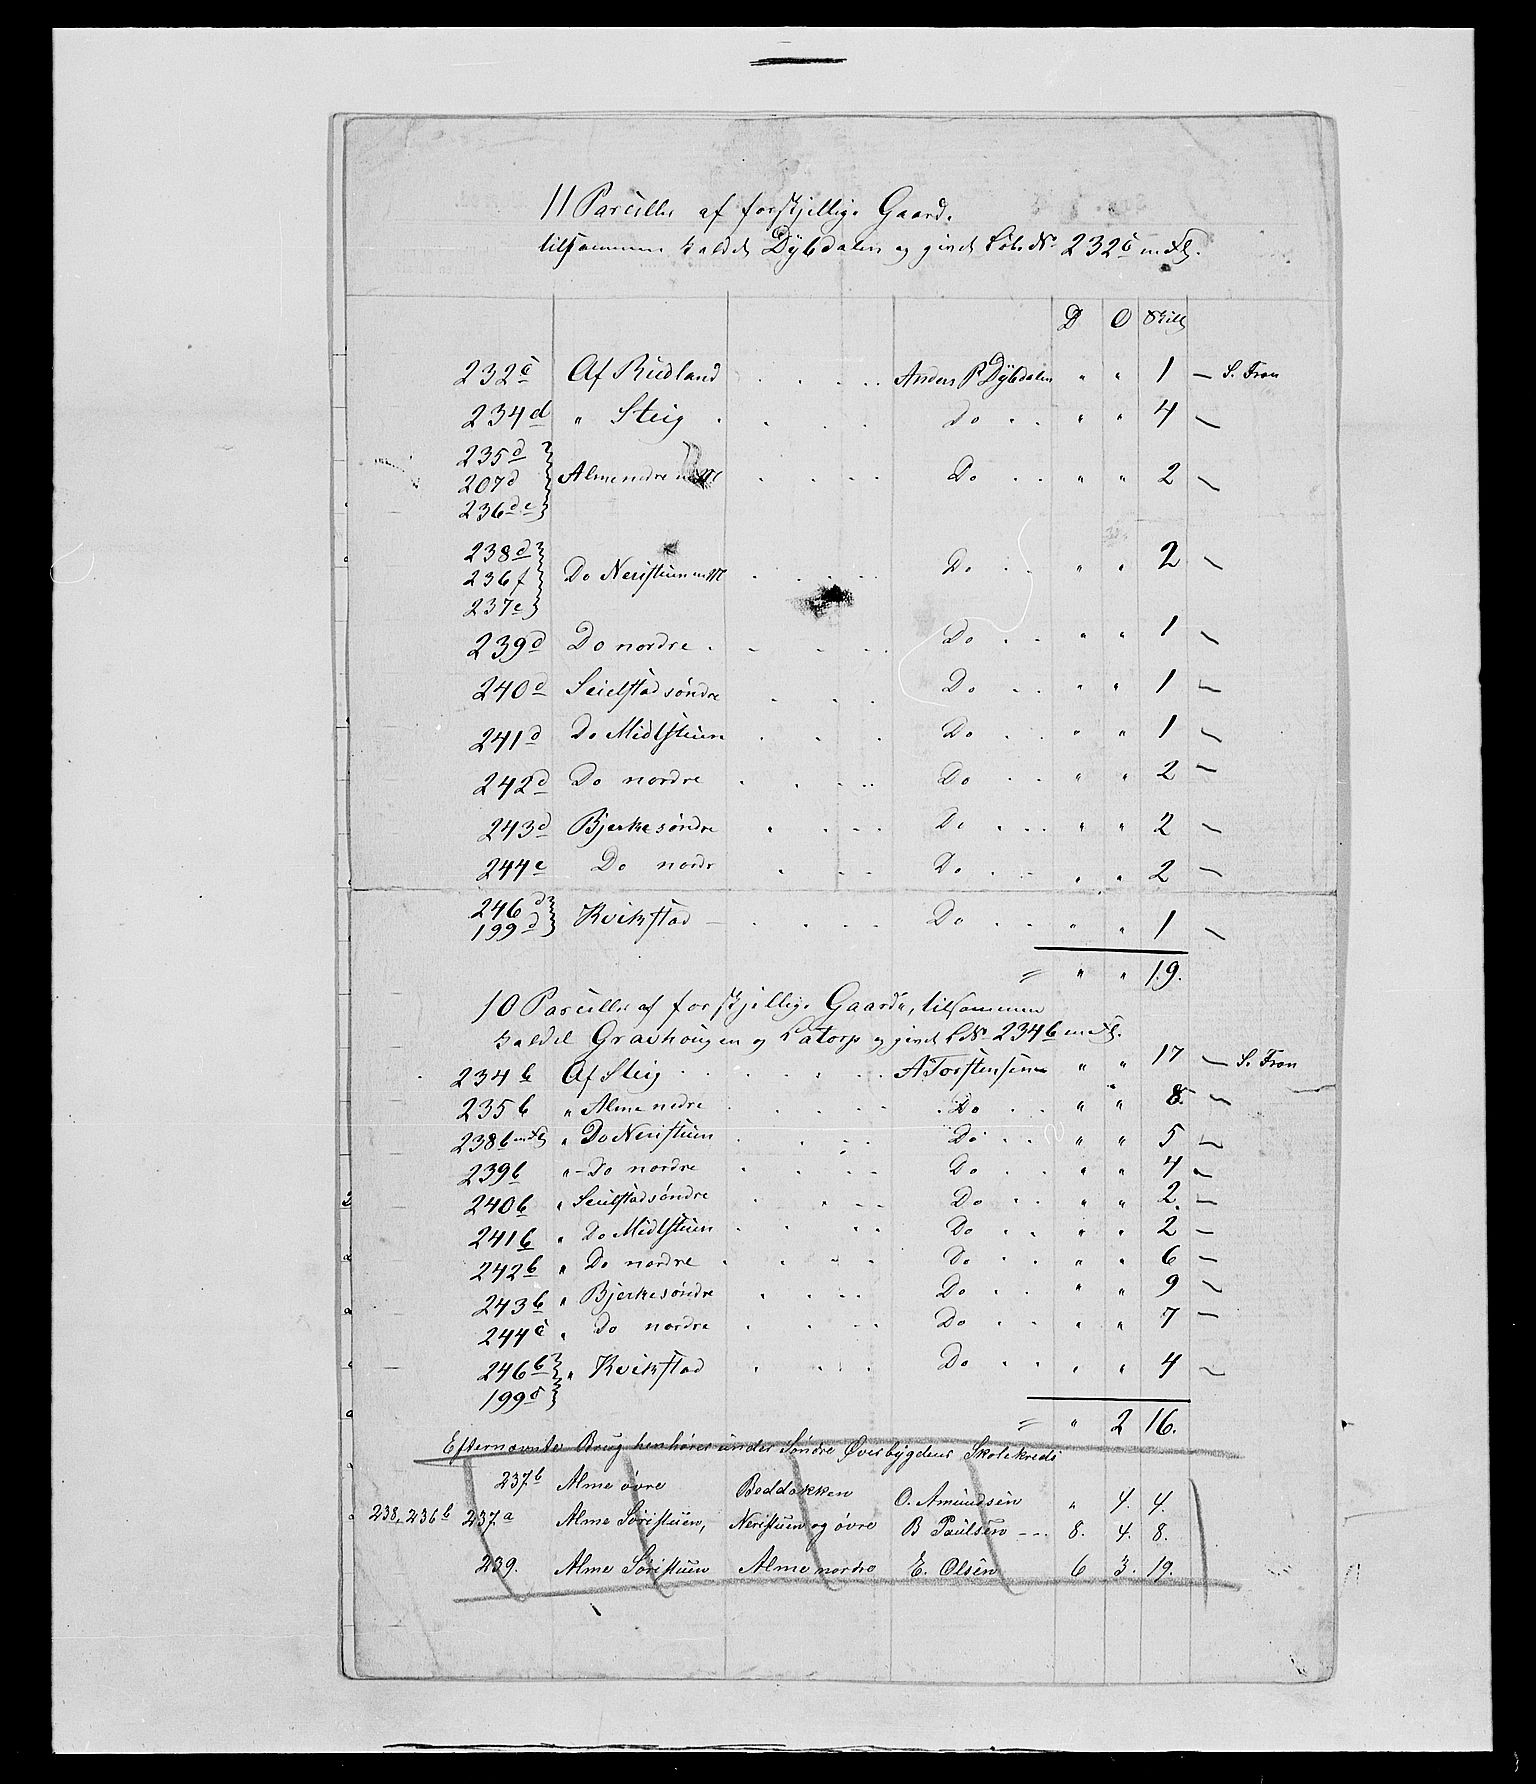 11 Parceller af forskjellige Gaarde
tilsammen kaldet Dybdalen og givet Løbe No 232c m. Fl.
D O Skill
232c Af Rudland . . . . Anders P Dybdalen " " 1 — S. Fron
234d " Steig . . . . Do . . " " 4 —
235d
207d Alme nedre m M . . . . Do . . " " 2 —
236d e
238d
236f Do Neristuen m M . . . . Do . . " " 2 —
237e
239d Do nordre . . . . Do . . " " 1 —
240d Seielstad søndre . . . Do . . " " 1 —
241d Do Midtstuen . . . Do . . " " 1 —
242d Do nordre . . . . Do . . " " 2 —
243d Bjerke søndre . . . . Do . . . " " 2 —
244e Do nordr . . . Do . . . " " 2 —
246d
199d Kvikstad — . . . . Do . . . " " 1 —
= " " 19.
10 Parceller af forskjellige Gaarde, tilsammen
kaldet Gravhougen og Latorp og givet L No 234b m. Fl.
234b Af Steig . . . . . . A Torstensen " " 17 — S. Fron
235b " Alme nedre . . . . . Do . . " " 8. —
238b m Fl " Do Neristuen . . . . Do . . " " 5 —
239b " - Do nordre . . . . Do . . " " 4 —
240b " Seielstad søndre . . . . Do . . " " 2. —
241b " Do Midtstuen . . . . Do . . " " 2 —
242b " Do nordre . . . . Do . . " " 6 —
243b " Bjerke søndre . . . . Do . . " " 9 —
244c " Do nordre . . . . Do . . " " 7 —
246b
" Kvikstad . . . . Do . . " " 4 —
199c
= " 2 16.
Efternævnte Brug henhører under Søndre Øverbygdens Skolekreds
237.b Alme øvre Beddakken O. Amundsen " 4. 4.
238, 236b 237.a Alme Søristuen, Neristuen og øvre B Paulsen - - . 8. 4. 8.
239. Alme Søristuen Alme nordre E. Olsen 6 3. 19.